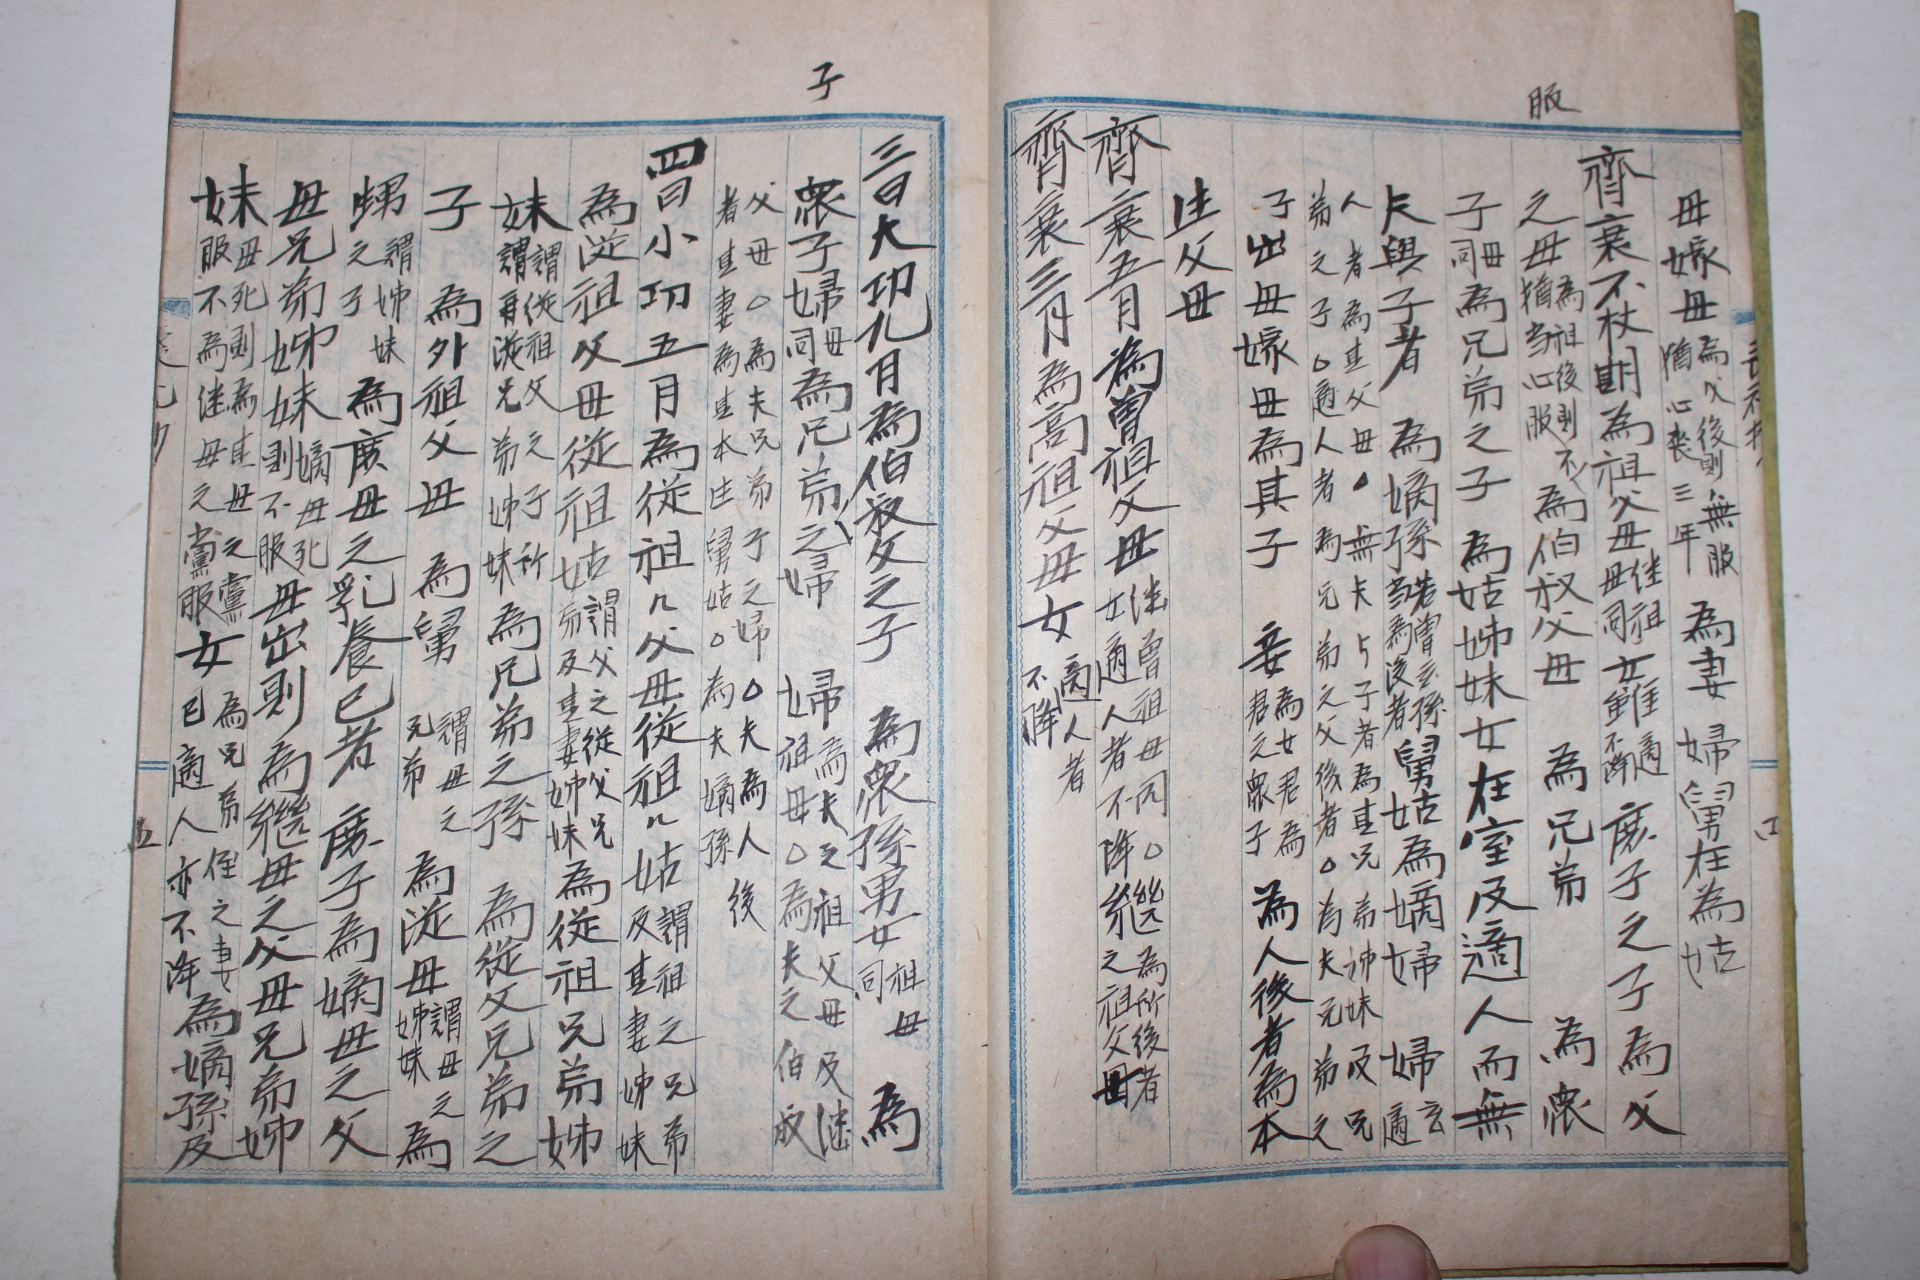 服
母嫁母為父後則無服猶心喪三年 為妻 婦舅在為姑
齊衰不杖期為祖父母継祖母同女雖適不降庶子之子為父
之母為祖後則不猶當心服為伯叔父母 為兄弟 為衆
子母同為兄弟之子 為姑姊妹女在室及適人而無
夫與子者 為嫡孫若曽玄孫當為後者舅姑為嫡婦 婦玄適
人者為其父母○無夫与子者為其兄弟姊妹及兄
弟之子○適人者為兄弟之父後者○為夫兄弟之
子出母嫁母為其子 妾為女君為君之衆子 為人後者為本
生父母
齊衰五月為曽祖父母継曽祖母同○女適人者不降継為所後者之祖父母
齊衰三月為高祖父母女適人者不降
子
三曰大功九月為伯叔父之子 為衆孫男女祖母同 為
衆子婦母同為兄弟之婦 婦為夫之祖父母及継祖母○為夫之伯叔
父母○為夫兄弟子之婦○夫為人後
者其妻為其本生舅姑○為夫嫡孫
四曰小功五月為従祖〻父母従祖〻姑謂祖之兄弟及其妻姊妹
為従祖父母従祖姑謂父之従父兄弟及其妻姊妹為従祖兄弟姊
妹謂従祖父之子所謂再従兄弟姊妹為兄弟之孫 為従父兄弟之
子 為外祖父母 為舅謂母之兄弟 為従母謂母之姊妹 為
甥謂姊妹之子 為庶母之乳養已者 庶子為嫡母之父
母兄弟姊妹嫡母死則不服母出則為継母之父母兄弟姊
妹母死則為其母之黨服不為継母之黨服女為兄弟侄之妻已適人亦不降為嫡孫及
五